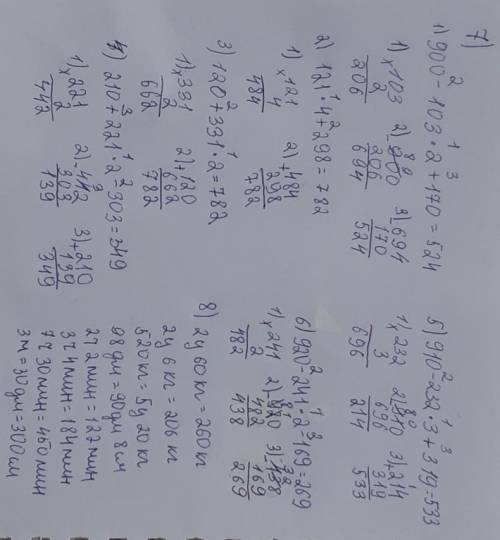 7)
2 1 3
1) 900 - 103 · 2 + 170 = 524
1) × 103 2) - 900 3) - 694
2 206 170
206 694 524
1 2
2) 121 · 4 + 298 = 782
1) × 121 2) + 484
4 298
484 782
2 1
3) 120 + 331 · 2 = 782
1) × 331 2) + 120
2 662
662 782
3 1 2
4) 210 + 221 · 2 - 303 = 349
1) × 221 2) - 442 3) + 210
2 303 139
442 139 349
2 1 3
5) 910 - 232 · 3 + 319 = 533
1) × 232 2) - 910 3) + 214
3 696 319
696 214 533
2 1 3
6) 920 - 241 · 2 - 169 = 269
1) × 241 2) - 920 3) - 438
2 482 169
482 438 269
8) 2ц 60 кг = 260 кг
2ц 6 кг = 206 кг
520 кг = 5ц 20 кг
98 дм = 90 дм 8 см
2ч 2 мин = 122 мин
3ч 4 мин = 184 мин
7ч 30 мин = 450 мин
3м = 30 дм = 300 см